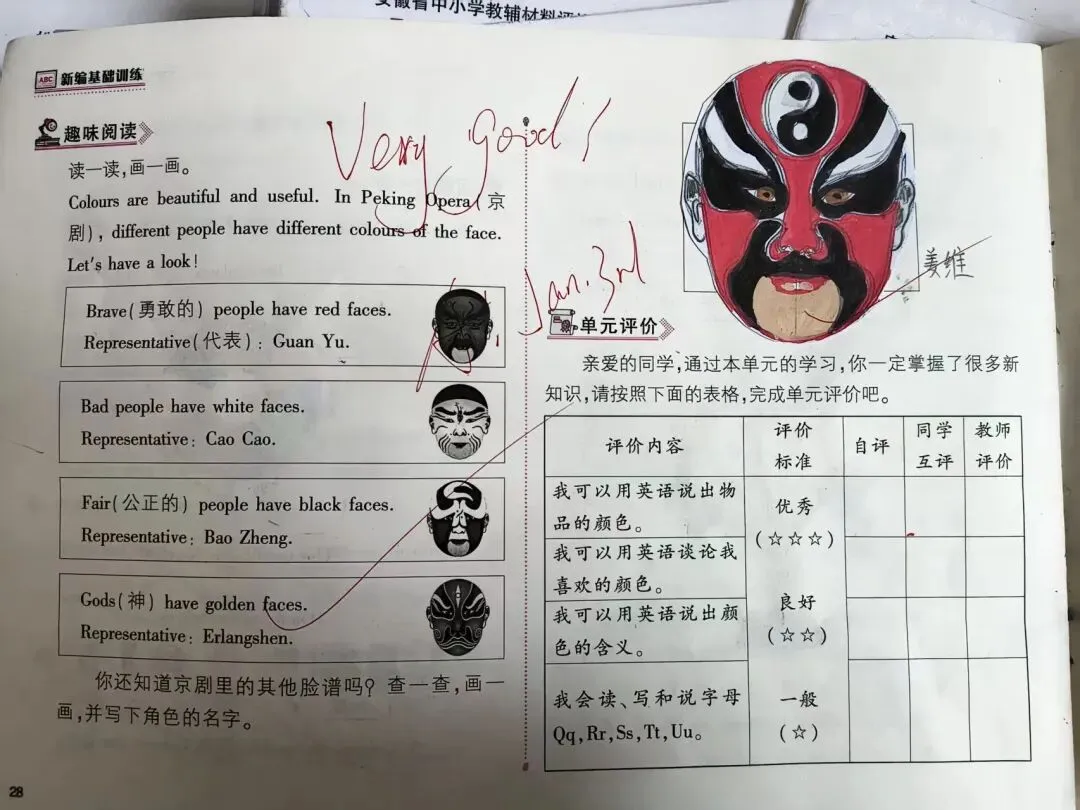 安徽省中小学教辅材料评
ABC
新编基础训练
趣味阅读
读一读,画一画。
Colours are beautiful and useful. In Peking Opera(京
剧), different people have different colours of the face.
Let's have a look!
Very good!
Jan. 3rd
Brave(勇敢的) people have red faces.
Representative(代表): Guan Yu.
Bad people have white faces.
Representative: Cao Cao.
Fair(公正的) people have black faces.
Representative: Bao Zheng.
Gods(神) have golden faces.
Representative: Erlangshen.
你还知道京剧里的其他脸谱吗? 查一查,画一
画,并写下角色的名字。
28
姜维
单元评价
亲爱的同学,通过本单元的学习,你一定掌握了很多新
知识,请按照下面的表格,完成单元评价吧。
评价内容 评价标准 自评 同学互评 教师评价
我可以用英语说出物
品的颜色。
优秀
(☆☆☆)
我可以用英语谈论我
喜欢的颜色。
良好
(☆☆)
我可以用英语说出颜
色的含义。
我会读、写和说字母
Qq,Rr,Ss,Tt,Uu。
一般
(☆)